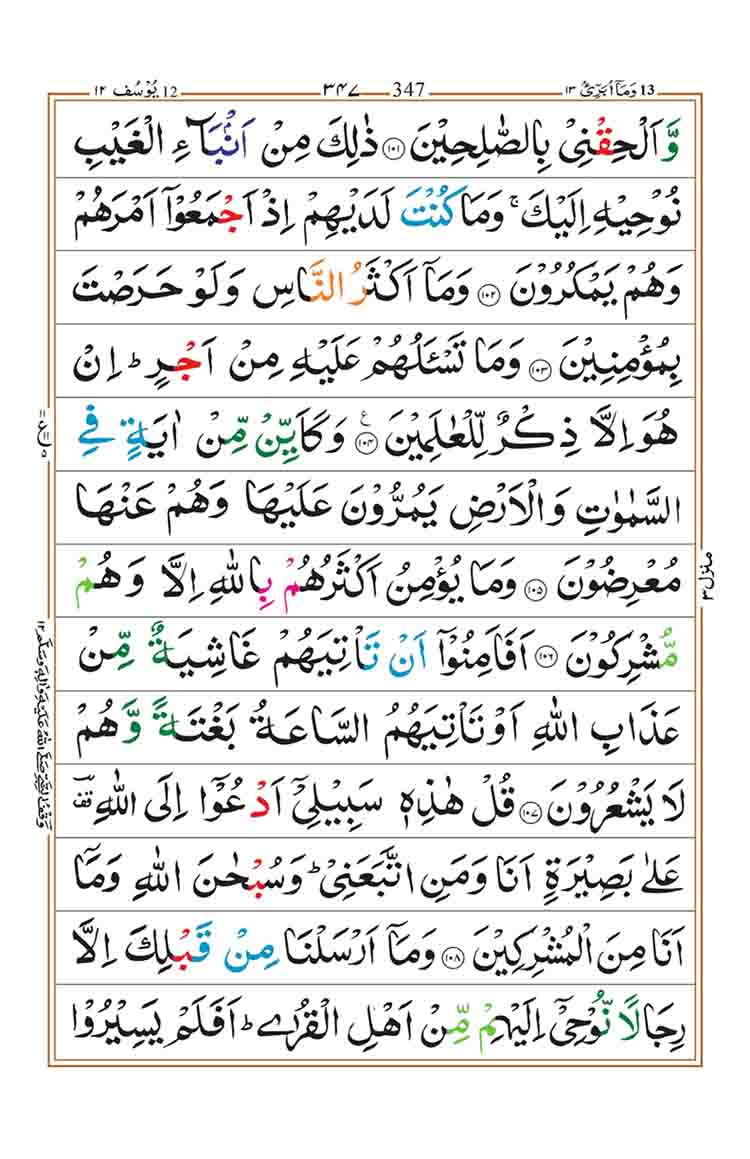 13 وَمَاۤ اُبَرِّئُ ١٣ 347 ٣٤٧ 12 يُوْسُف ١٢
وَّ اَلْحِقْنِیْ بِالصّٰلِحِیْنَ ﴿۱۰۱﴾ ذٰلِكَ مِنْ اَنْۢبَآءِ الْغَیْبِ
نُوْحِیْهِ اِلَیْكَ ۚ وَمَا كُنْتَ لَدَیْهِمْ اِذْ اَجْمَعُوْۤا اَمْرَهُمْ
وَهُمْ یَمْكُرُوْنَ ﴿۱۰۲﴾ وَمَاۤ اَكْثَرُ النَّاسِ وَلَوْ حَرَصْتَ
بِمُؤْمِنِیْنَ ﴿۱۰۳﴾ وَمَا تَسْـَٔلُهُمْ عَلَیْهِ مِنْ اَجْرٍ ؕ اِنْ
هُوَ اِلَّا ذِكْرٌ لِّلْعٰلَمِیْنَ ﴿۱۰۴﴾ ع وَكَاَیِّنْ مِّنْ اٰیَةٍ فِی
السَّمٰوٰتِ وَالْاَرْضِ یَمُرُّوْنَ عَلَیْهَا وَهُمْ عَنْهَا
مُعْرِضُوْنَ ﴿۱۰۵﴾ وَمَا یُؤْمِنُ اَكْثَرُهُمْ بِاللّٰهِ اِلَّا وَهُمْ
مُّشْرِكُوْنَ ﴿۱۰۶﴾ اَفَاَمِنُوْۤا اَنْ تَاْتِیَهُمْ غَاشِیَةٌ مِّنْ
عَذَابِ اللّٰهِ اَوْ تَاْتِیَهُمُ السَّاعَةُ بَغْتَةً وَّهُمْ
لَا یَشْعُرُوْنَ ﴿۱۰۷﴾ قُلْ هٰذِهٖ سَبِیْلِیْۤ اَدْعُوْۤا اِلَی اللّٰهِ ؔ۫
عَلٰی بَصِیْرَةٍ اَنَا وَمَنِ اتَّبَعَنِیْ ؕ وَسُبْحٰنَ اللّٰهِ وَمَاۤ
اَنَا مِنَ الْمُشْرِكِیْنَ ﴿۱۰۸﴾ وَمَاۤ اَرْسَلْنَا مِنْ قَبْلِكَ اِلَّا
رِجَالًا نُّوْحِیْۤ اِلَیْهِمْ مِّنْ اَهْلِ الْقُرٰی ؕ اَفَلَمْ یَسِیْرُوْا
منزل ٣
وقف النبی صلی اللہ علیہ وآلہ وسلم ١٢